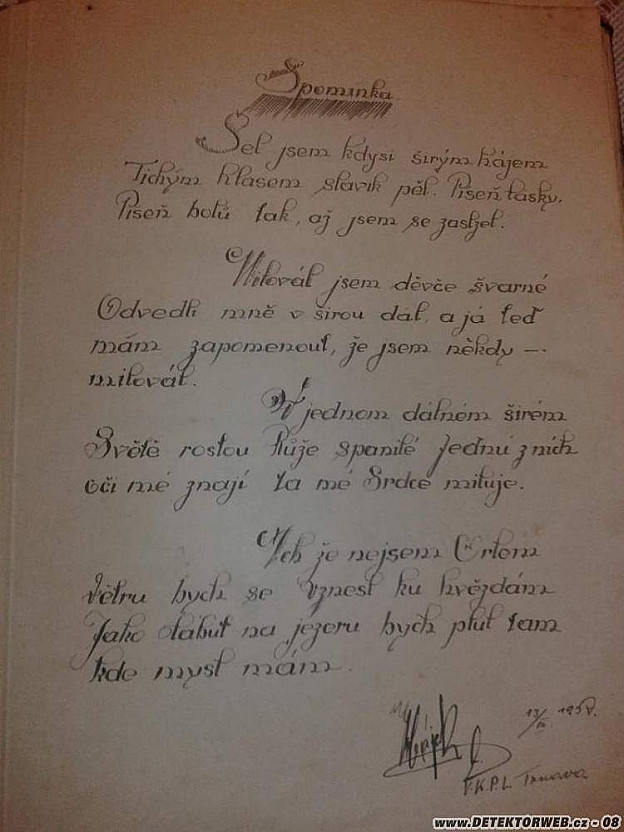 Spomínka
Šel jsem kdysi širým hájem
Tichým hlasem slavík pěl. Píseň lásky,
Píseň bolů tak, až jsem se zaslzel.
Miloval jsem děvče švarné
Odvedli mně v širou dál, a já teď
mám zapomenout, že jsem někdy –
miloval.
V jednom dálném širém
Světě rostou Růže spanilé Jednu z nich
oči mé znají ta mé Srdce miluje.
Ach že nejsem Orlem
Větru bych se vznesl ku hvězdám
Jako labuť na jezeru bych plul tam
kde mysl mám.
V.K.P.L. Trnava
www.DETEKTORWEB.cz - 08